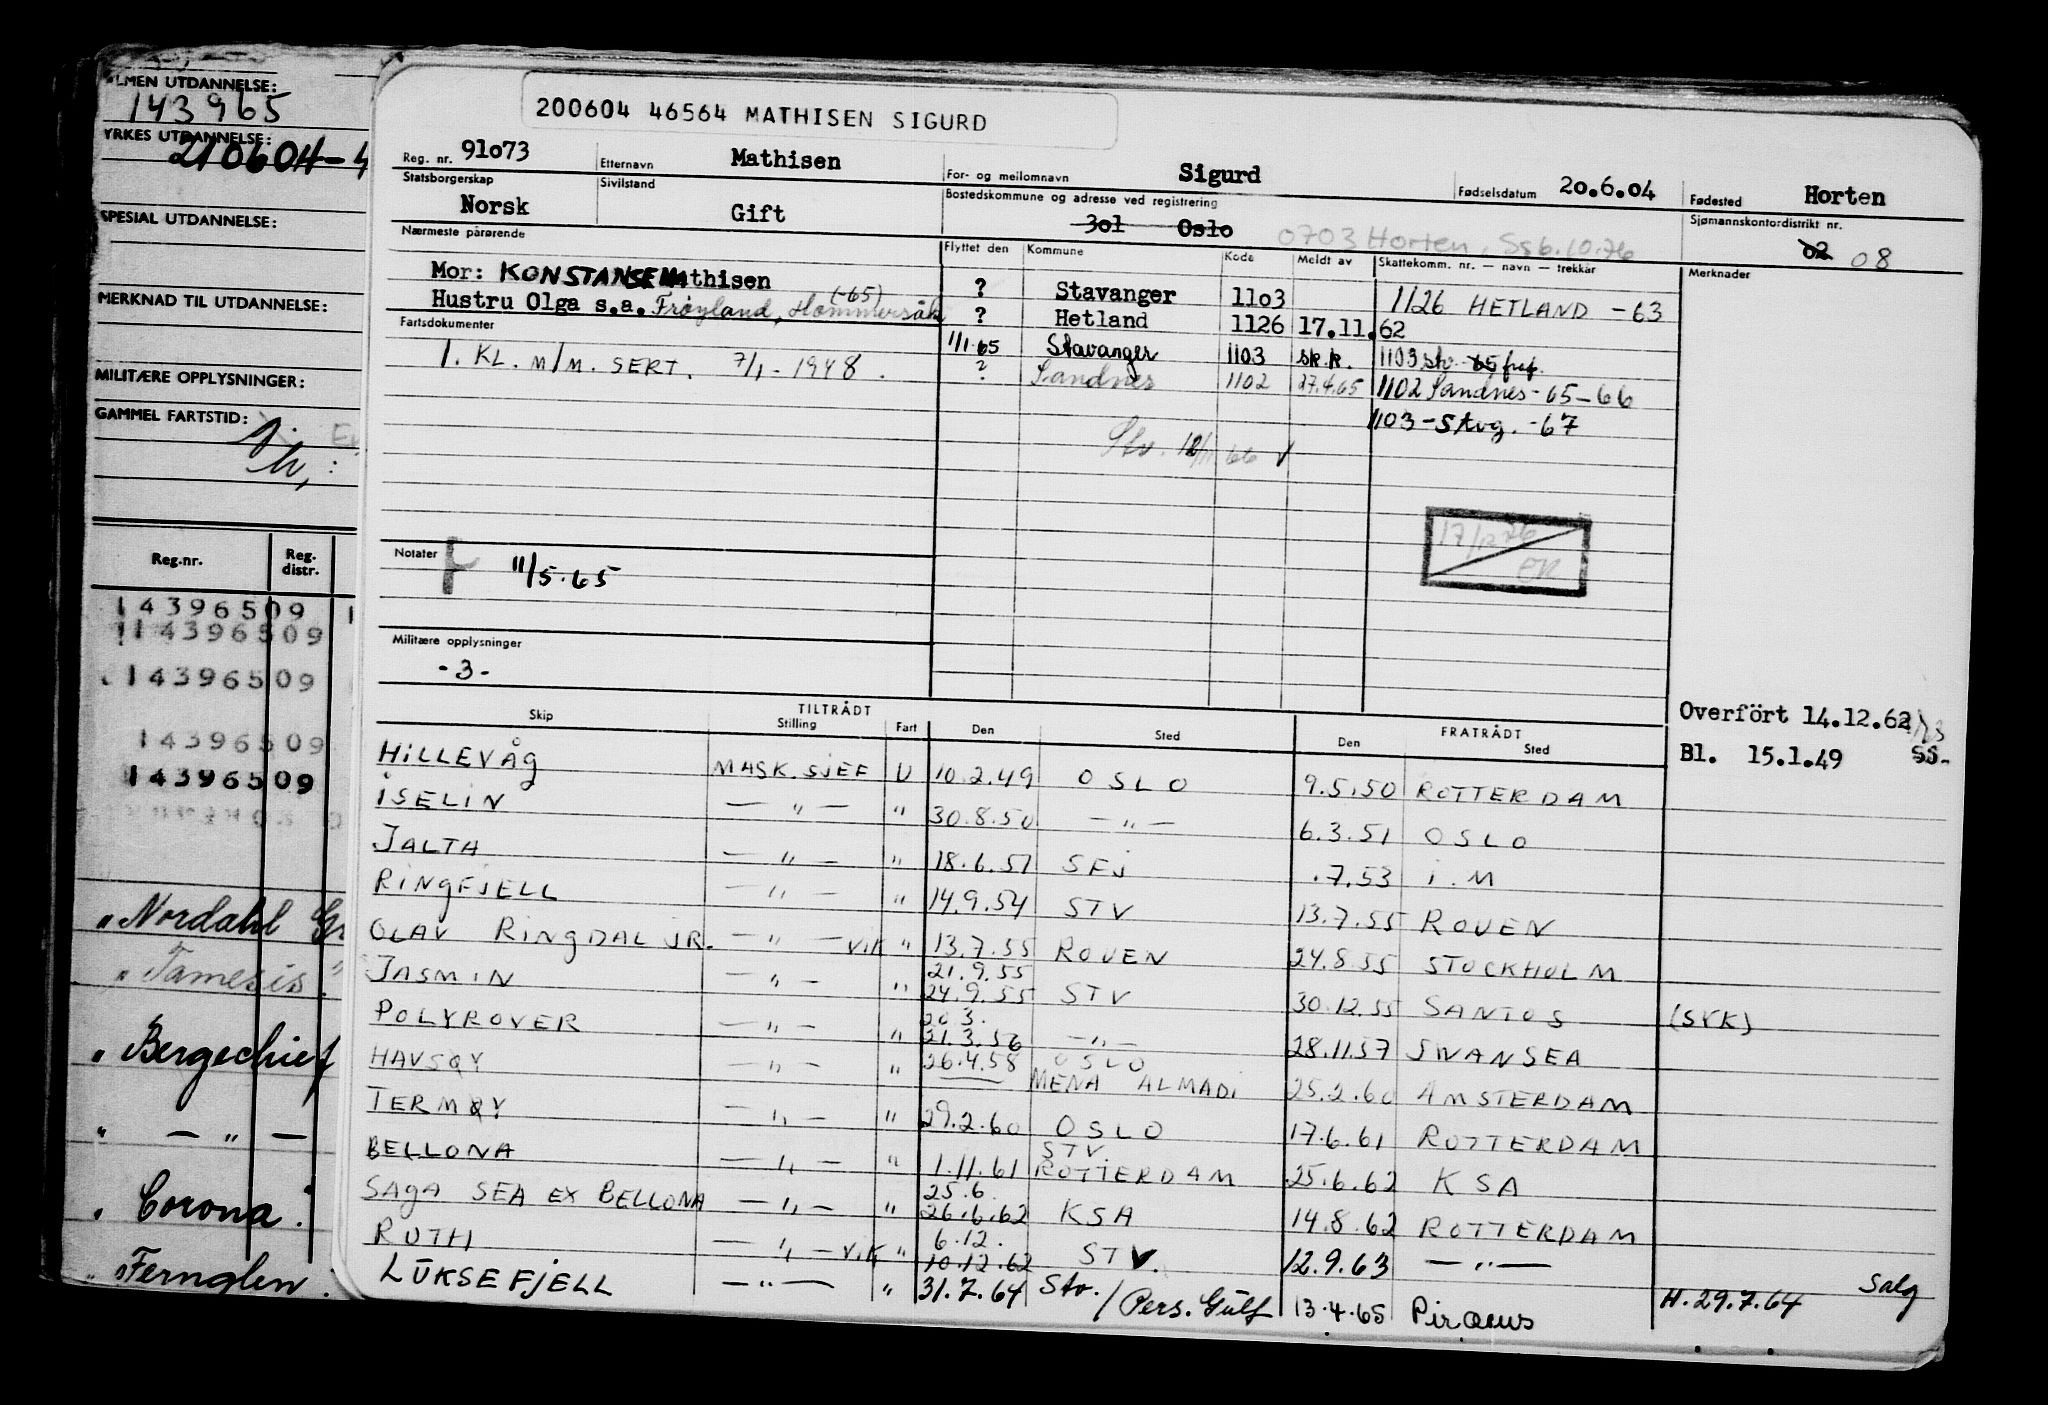 ALMEN UTDANNELSE:
143965
YRKES UTDANNELSE:
210604-4
SPESIAL UTDANNELSE:
MERKNAD TIL UTDANNELSE:
MILITÆRE OPPLYSNINGER:
GAMMEL FARTSTID:
Reg.nr. Reg. distr.
14396509
14396509
14396509
14396509
14396509
" Nordahl Gr
" Tamesis."
" Bergechief
" — " —
" Corona.
" Fernglen.
200604 46564 MATHISEN SIGURD
Reg. nr. 91o73 Etternavn Mathisen For- og mellomnavn Sigurd Fødselsdatum 20.6.04 Fødested Horten
Statsborgerskap Norsk Sivilstand Gift Bostedskommune og adresse ved registrering 3o1 Oslo 0703 Horten, Ss 6.10.76 Sjømannskontordistrikt nr. 02 08
Nærmeste pårørende Flyttet den Kommune Kode Meldt av Skattekomm. nr. — navn — trekkår Merknader
Mor: KONSTANSE Mathisen ? Stavanger 11o3 1126 HETLAND -63
Hustru Olga s.a. Frøyland, Hommersåk (-65) ? Hetland 1126 17.11.62
Fartsdokumenter 1/1-65 Stavanger 1103 sk.k. 1103 Stv. 65
1. KL. M/M. SERT. 7/1-1948. ? Sandnes 1102 27.4.65 1102 Sandnes-65-66
1103-Stvg.-67
Stv. 12/11 66
17/12 76
Notater F 11/5.65
Militære opplysninger
-3-
Overfört 14.12.62
Bl. 15.1.49 SS-
TILTRÅDT FRATRÅDT
Skip Stilling Fart Den Sted Den Sted
HILLEVÅG MASK.SJEF U 10.2.49 OSLO 9.5.50 ROTTERDAM
ISELIN — " — " 30.8.50 — " — 6.3.51 OSLO
JALTA — " — " 18.6.51 SFJ .7.53 I.M
RINGFJELL — " — " 14.9.54 STV 13.7.55 ROUEN
OLAV RINGDAL JR. — " — VIK " 13.7.55 ROUEN 24.8.55 STOCKHOLM
JASMIN — " — " 21.9.55 24.9.55 STV 30.12.55 SANTOS (SYK)
POLYROVER — " — " 20.3. 21.3.56 — " — 28.11.57 SWANSEA
HAVSØY — " — " 26.4.58 OSLO MENA ALMADI 25.2.60 AMSTERDAM
TERMØY — " — " 29.2.60 OSLO 17.6.61 ROTTERDAM
BELLONA — " — " 1.11.61 STV. ROTTERDAM 25.6.62 KSA
SAGA SEA EX BELLONA — " — " 25.6. 26.6.62 KSA 14.8.62 ROTTERDAM
RUTH — " — VIK " 6.12. 10.12.62 STV. 12.9.63 — " — Salg
LUKSEFJELL — " — " 31.7.64 Stv. / Pers. Gulf 13.4.65 Piraeus H.29.7.64